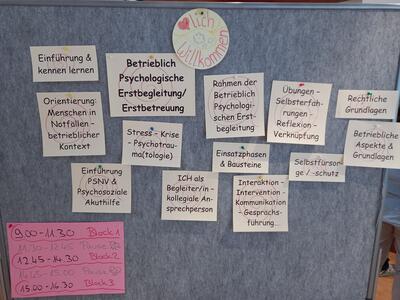 Herzlich
Willkommen
Einführung &
kennen lernen
Betrieblich
Psychologische
Erstbegleitung/
Erstbetreuung
Rahmen der
Betrieblich
Psychologi-
schen Erst-
begleitung
Übungen -
Selbsterfah-
rungen -
Reflexion -
Verknüpfung
Rechtliche
Grundlagen
Orientierung:
Menschen in
Notfällen -
betrieblicher
Kontext
Stress - Krise
- Psychotrau-
ma(tologie)
Einsatzphasen
& Bausteine
Selbstfürsor-
ge / -schutz
Betriebliche
Aspekte &
Grundlagen
Einführung
PSNV &
Psychosoziale
Akuthilfe
ICH als
Begleiter/in -
kollegiale An-
sprechperson
Interaktion -
Intervention -
Kommunikation
- Gesprächs-
führung...
9.00 - 11.30 Block 1
11.30 - 12.45 Pause
12.45 - 14.30 Block 2
14.45 - 15.00 Pause
15.00 - 16.30 Block 3